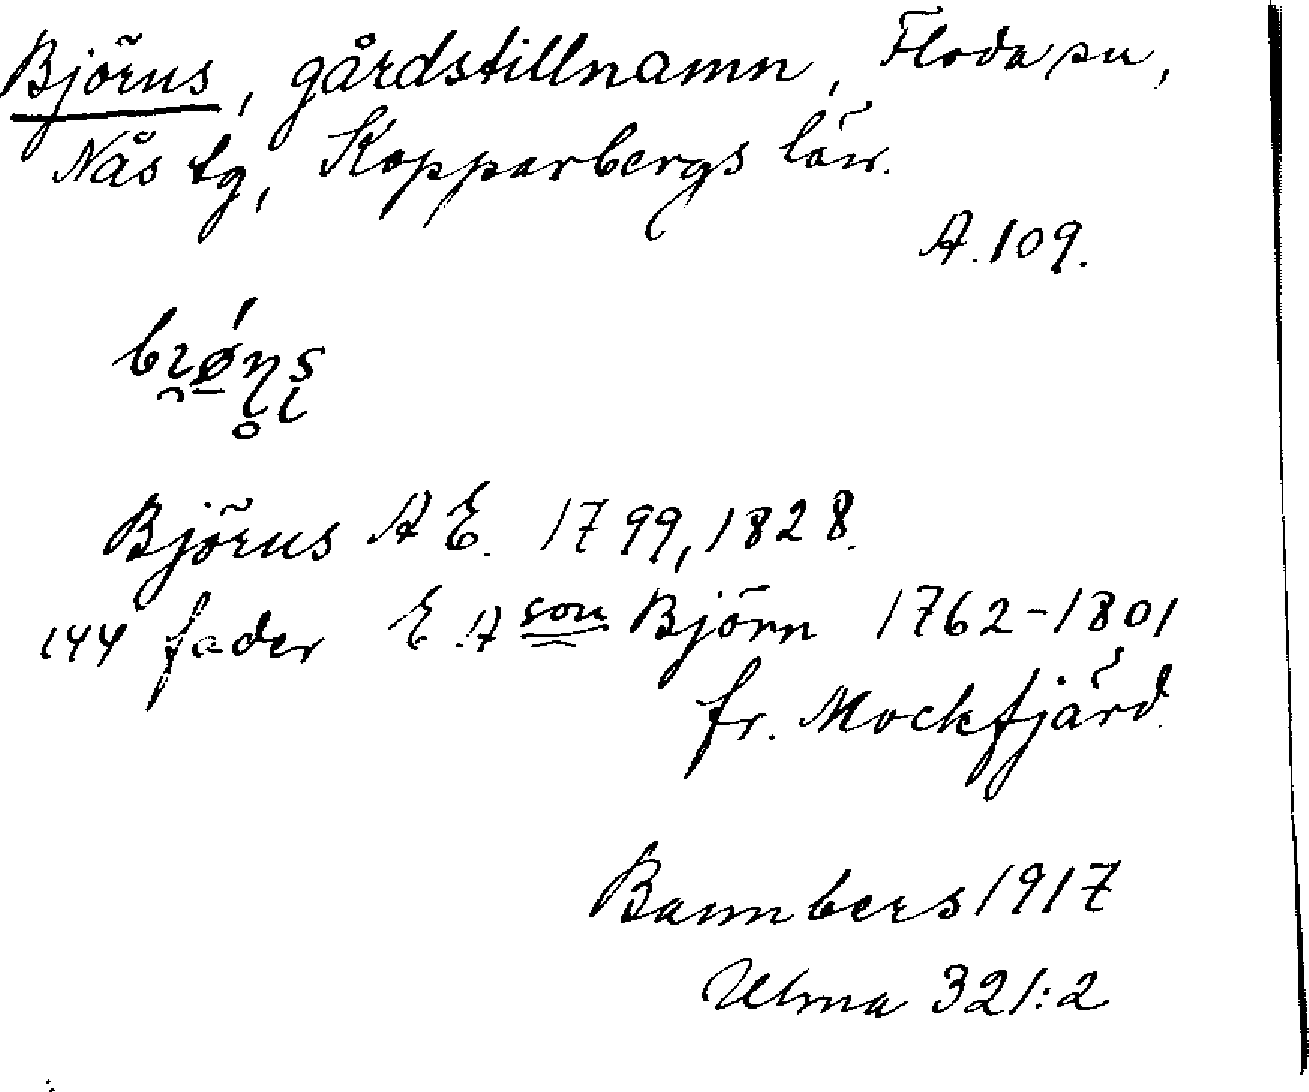 Björns, gårdstillnamn, Floda sn,
Nås tg, Kopparbergs län.
A. 109.
Björns A E. 1799, 1828.
144 fader E. A son Björn 1762-1801
fr. Mockfjärd.
Bannbers 1917
Ulma 321:2